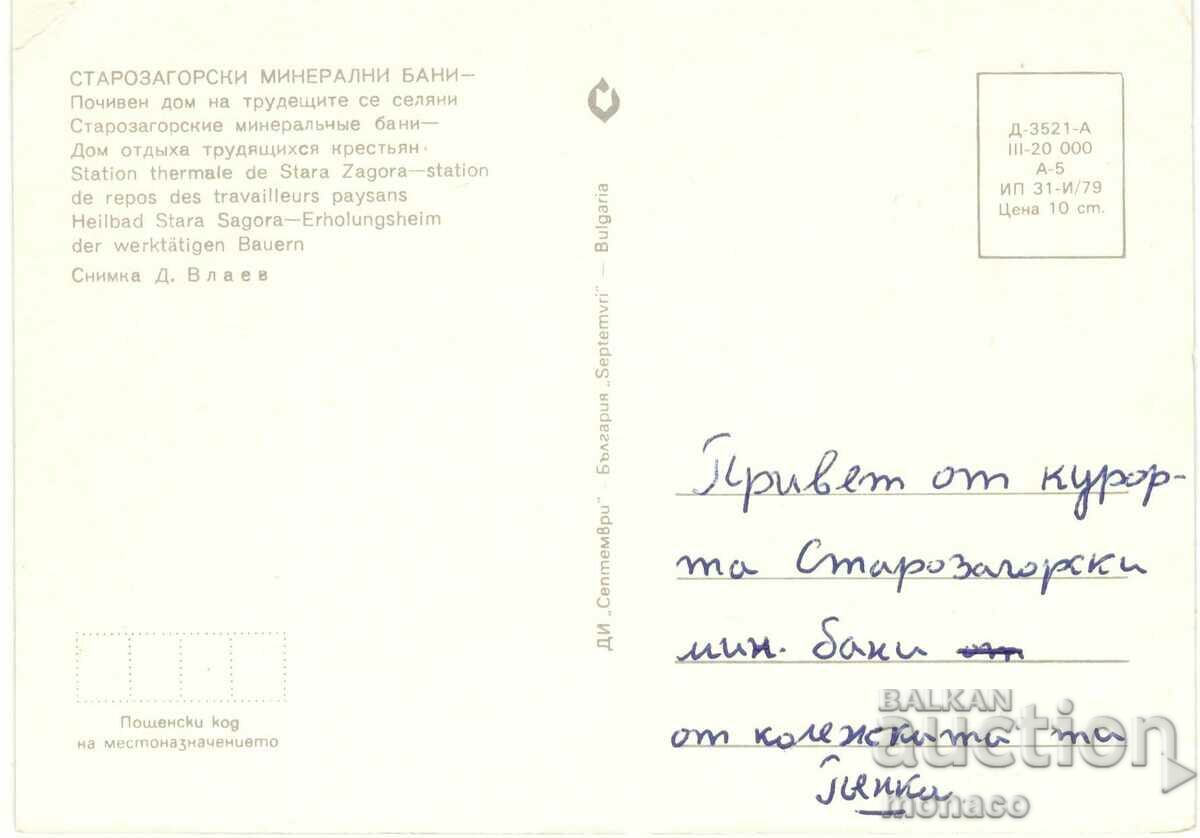 СТАРОЗАГОРСКИ МИНЕРАЛНИ БАНИ—
Почивен дом на трудещите се селяни
Старозагорские минеральные бани—
Дом отдыха трудящихся крестьян.
Station thermale de Stara Zagora—station
de repos des travailleurs paysans
Heilbad Stara Sagora—Erholungsheim
der werktätigen Bauern
Снимка Д. Влаев
ДИ „Септември" - България „Septemvri" — Bulgaria
Д-3521-А
III-20 000
А-5
ИП 31-И/79
Цена 10 ст.
Привет от курор-
та Старозагорски
мин. бани от
от колежката та
Пенка
Пощенски код
на местоназначението
BALKAN
auction
monaco